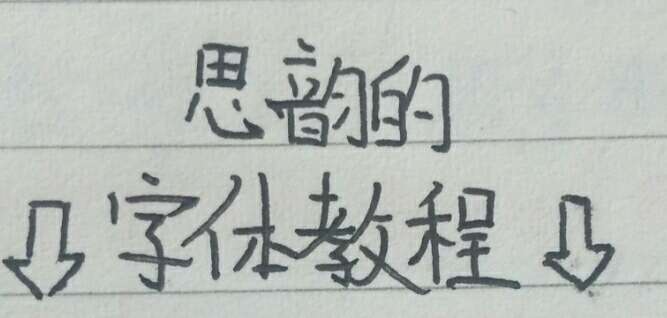 思韵的
⇩字体教程⇩